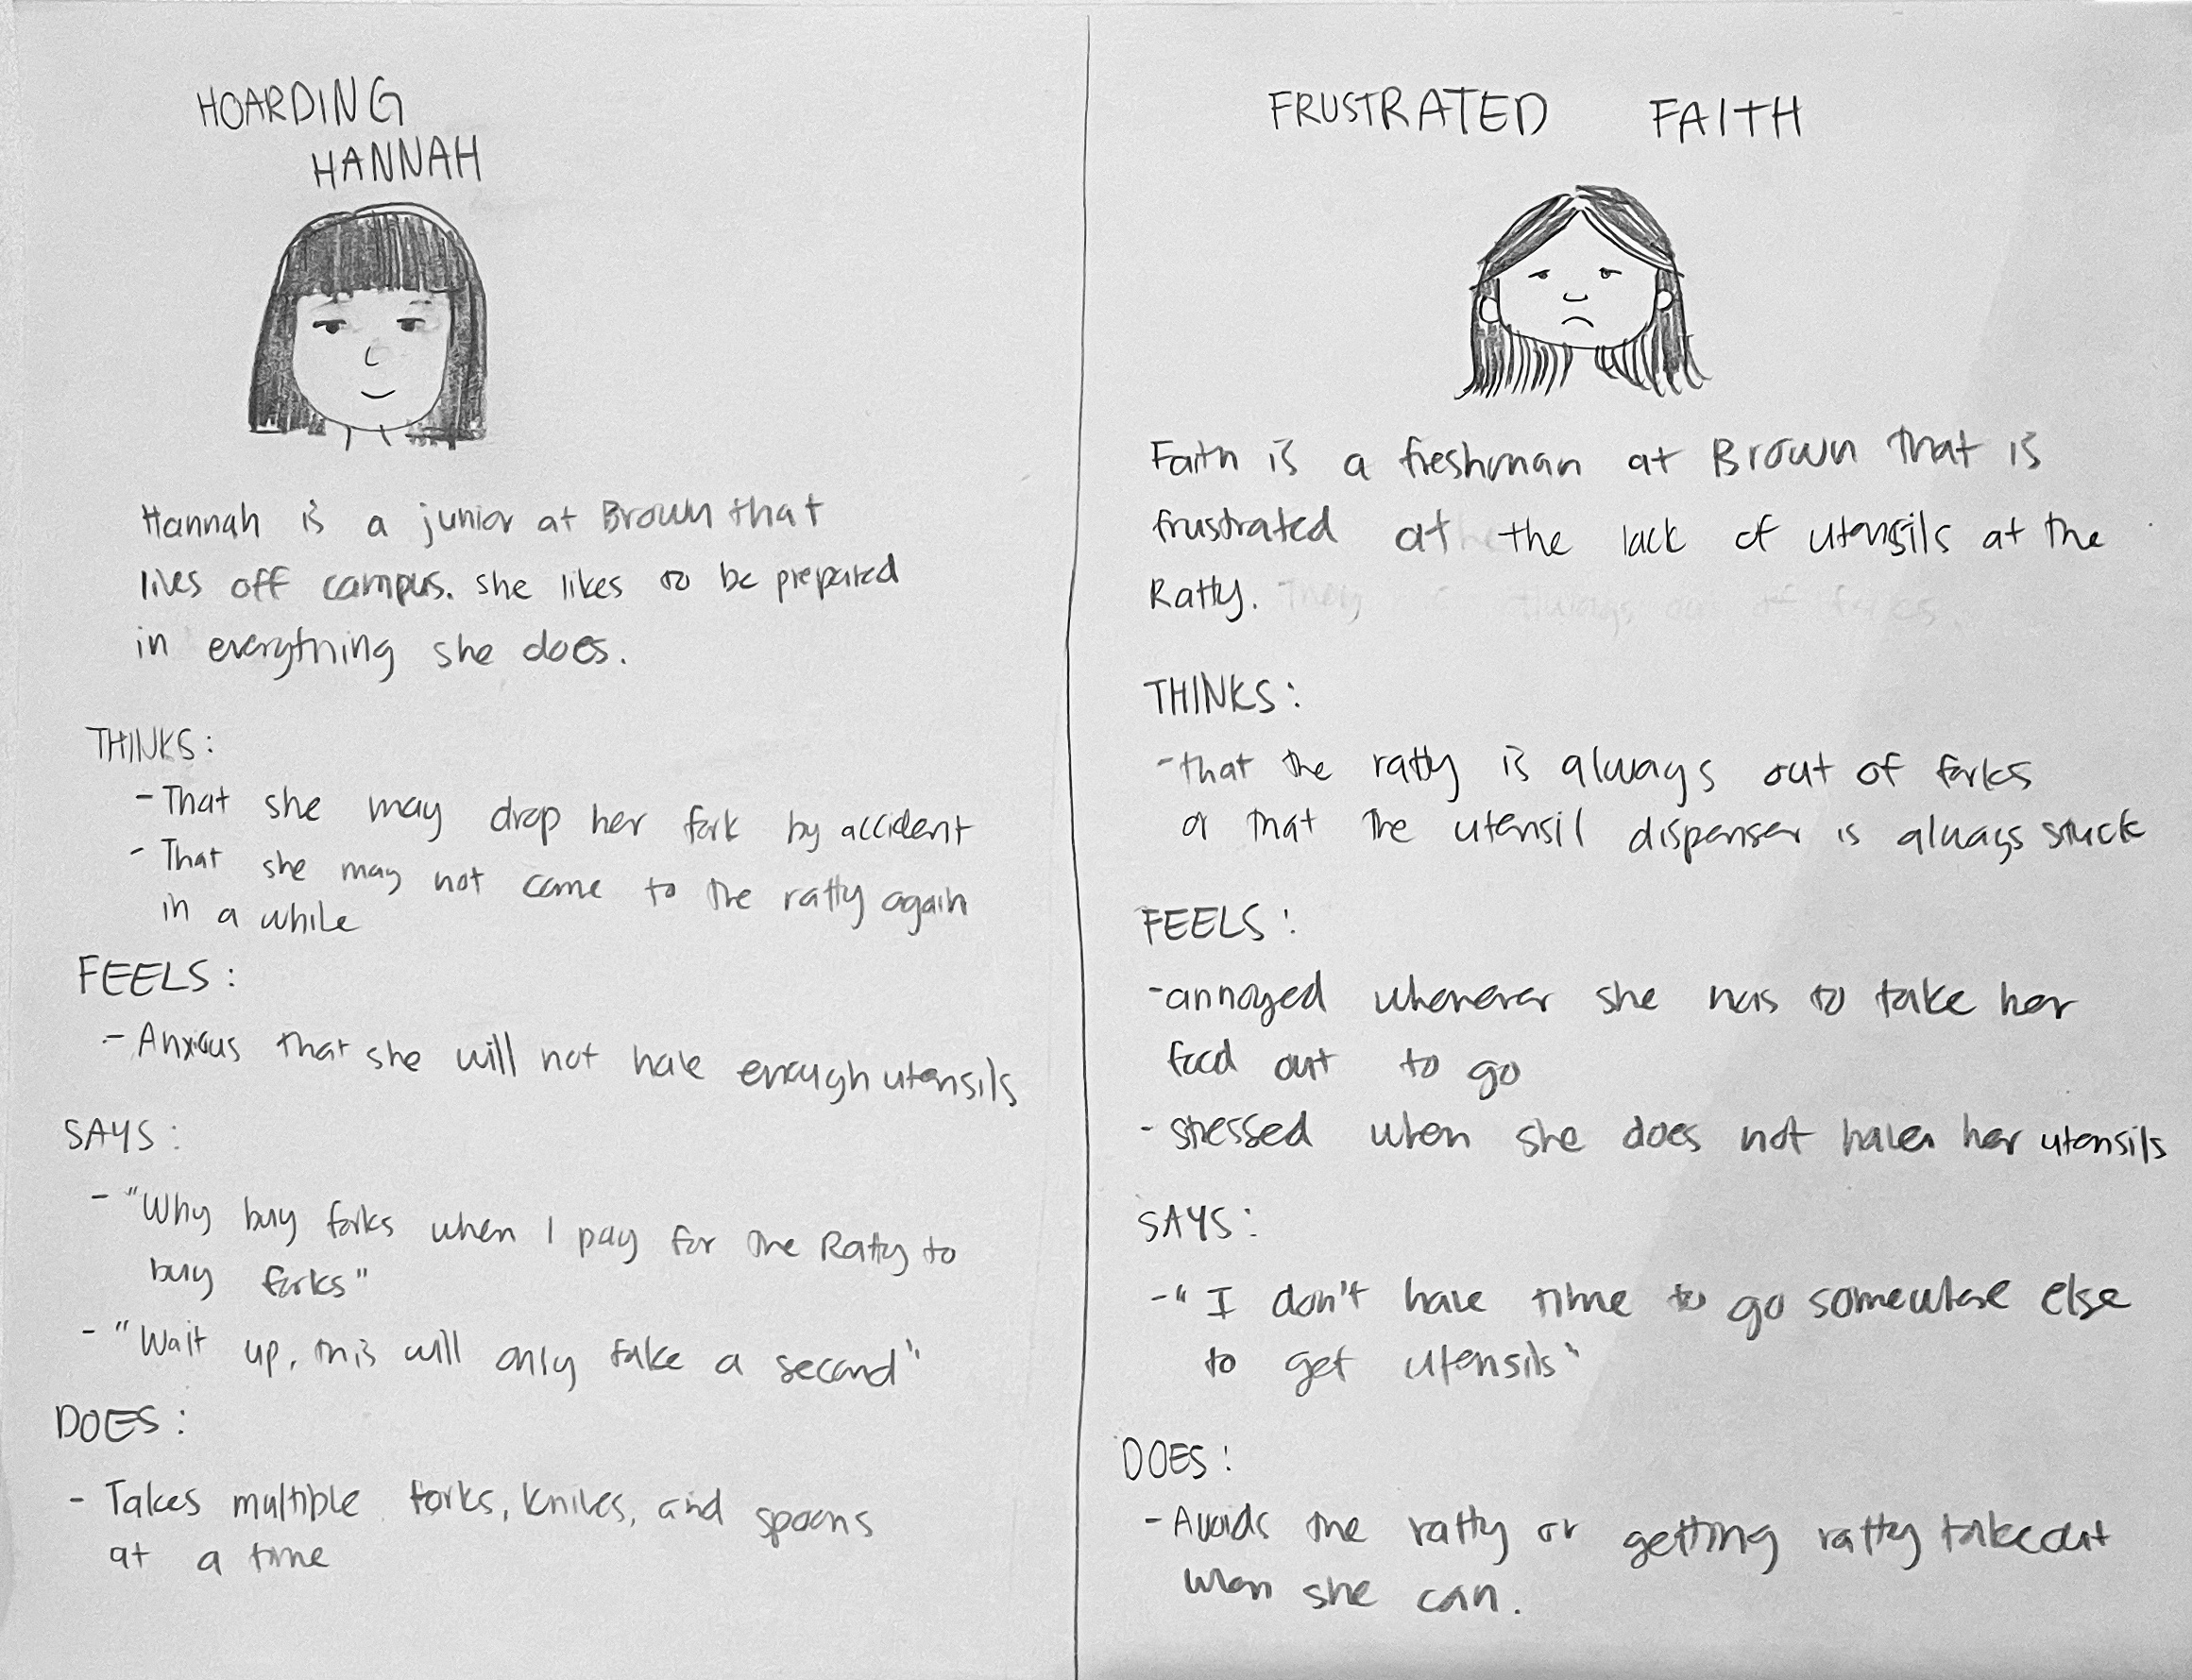 HOARDING
HANNAH
Hannah is a junior at Brown that
lives off campus. she likes to be prepared
in everything she does.
THINKS:
- That she may drop her fork by accident
- That she may not come to the ratty again
in a while
FEELS:
- Anxious that she will not have enough utensils
SAYS:
- "Why buy forks when I pay for the Ratty to
buy forks"
- "Wait up, this will only take a second"
DOES:
- Takes multiple forks, knives, and spoons
at a time
FRUSTRATED FAITH
Faith is a freshman at Brown that is
frustrated at the lack of utensils at the
Ratty. They always out of forks
THINKS:
- that the ratty is always out of forks
or that the utensil dispenser is always stuck
FEELS:
- annoyed whenever she has to take her
food out to go
- stressed when she does not have her utensils
SAYS:
- "I don't have time to go somewhere else
to get utensils"
DOES:
- Avoids the ratty or getting ratty takeout
when she can.